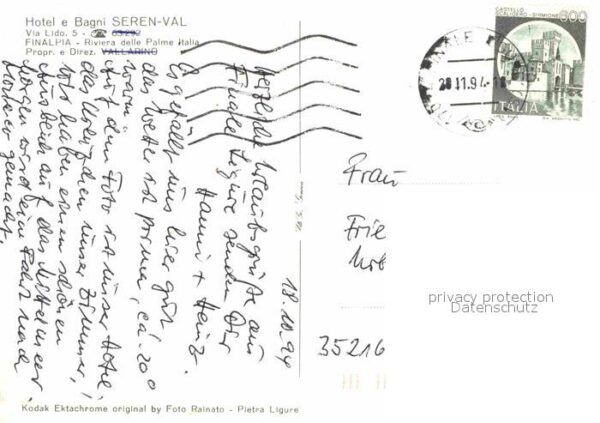 Hotel e Bagni SEREN-VAL
Via Lido. 5 - ☎ 63.292
FINALPIA - Riviera delle Palme Italia
Propr. e Direz. VALLARINO
CASTELLO
SCALIGERO - SIRMIONE
600
ITALIA
FINALE
28.11.94-18
18.10.94
Herzliche Urlaubsgrüße aus
Finale Ligure senden Dir
Hanni + Heinz.
Es gefällt uns hier gut
das Wetter ist prima, ca. 20°
warm.
Auf dem Foto ist unser Hotel,
das Kreuzchen unser Zimmer,
wir haben einen schönen
Ausblick auf das Mittelmeer,
morgen wird eine Fahrt nach
Monaco gemacht.
Frau
Frie
35216
privacy protection
Datenschutz
Kodak Ektachrome original by Foto Rainato - Pietra Ligure